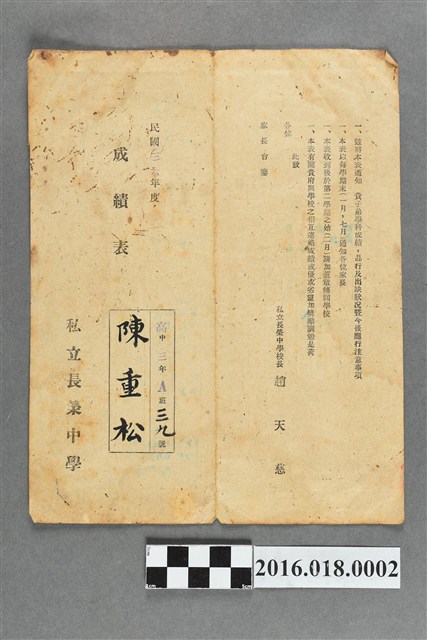 一、茲用本表通知　貴子弟學科成績，品行及出缺狀況暨今後應行注意事項
一、本表以每學期末(一月，七月)通知各位家長
一、本表收到後於第二學期之始(二月)請加蓋章轉回學校
一、本表有關貴府與學校之相互連絡
此致
家長台鑒
私立長榮中學校長 趙天慈
民國三 年度
成績表
高中三年A班三九號
陳重松
私立長榮中學
2016.018.0002